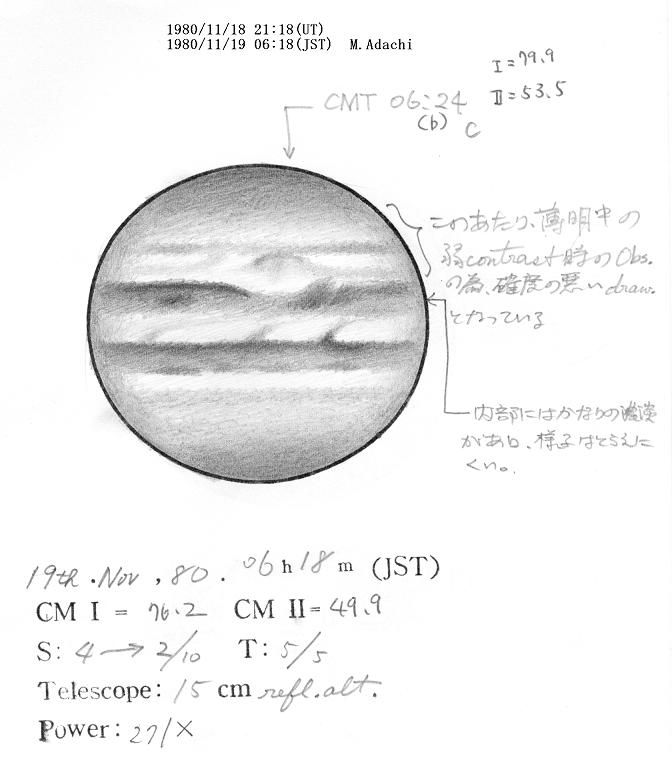 1980/11/18 21:18(UT)
1980/11/19 06:18(JST) M.Adachi
I=79.9
II=53.5
CMT 06:24
(b) C
このあたり、薄明中の
弱contrast時のObs.
の為、確度の悪いdraw.
となっている
内部にはかなりの濃淡
があり、様子はとらえに
くい。
19th.Nov,80. 06h18m (JST)
CM I = 76.2 CM II=49.9
S: 4→2/10 T: 5/5
Telescope: 15 cm refl.alt.
Power: 271X